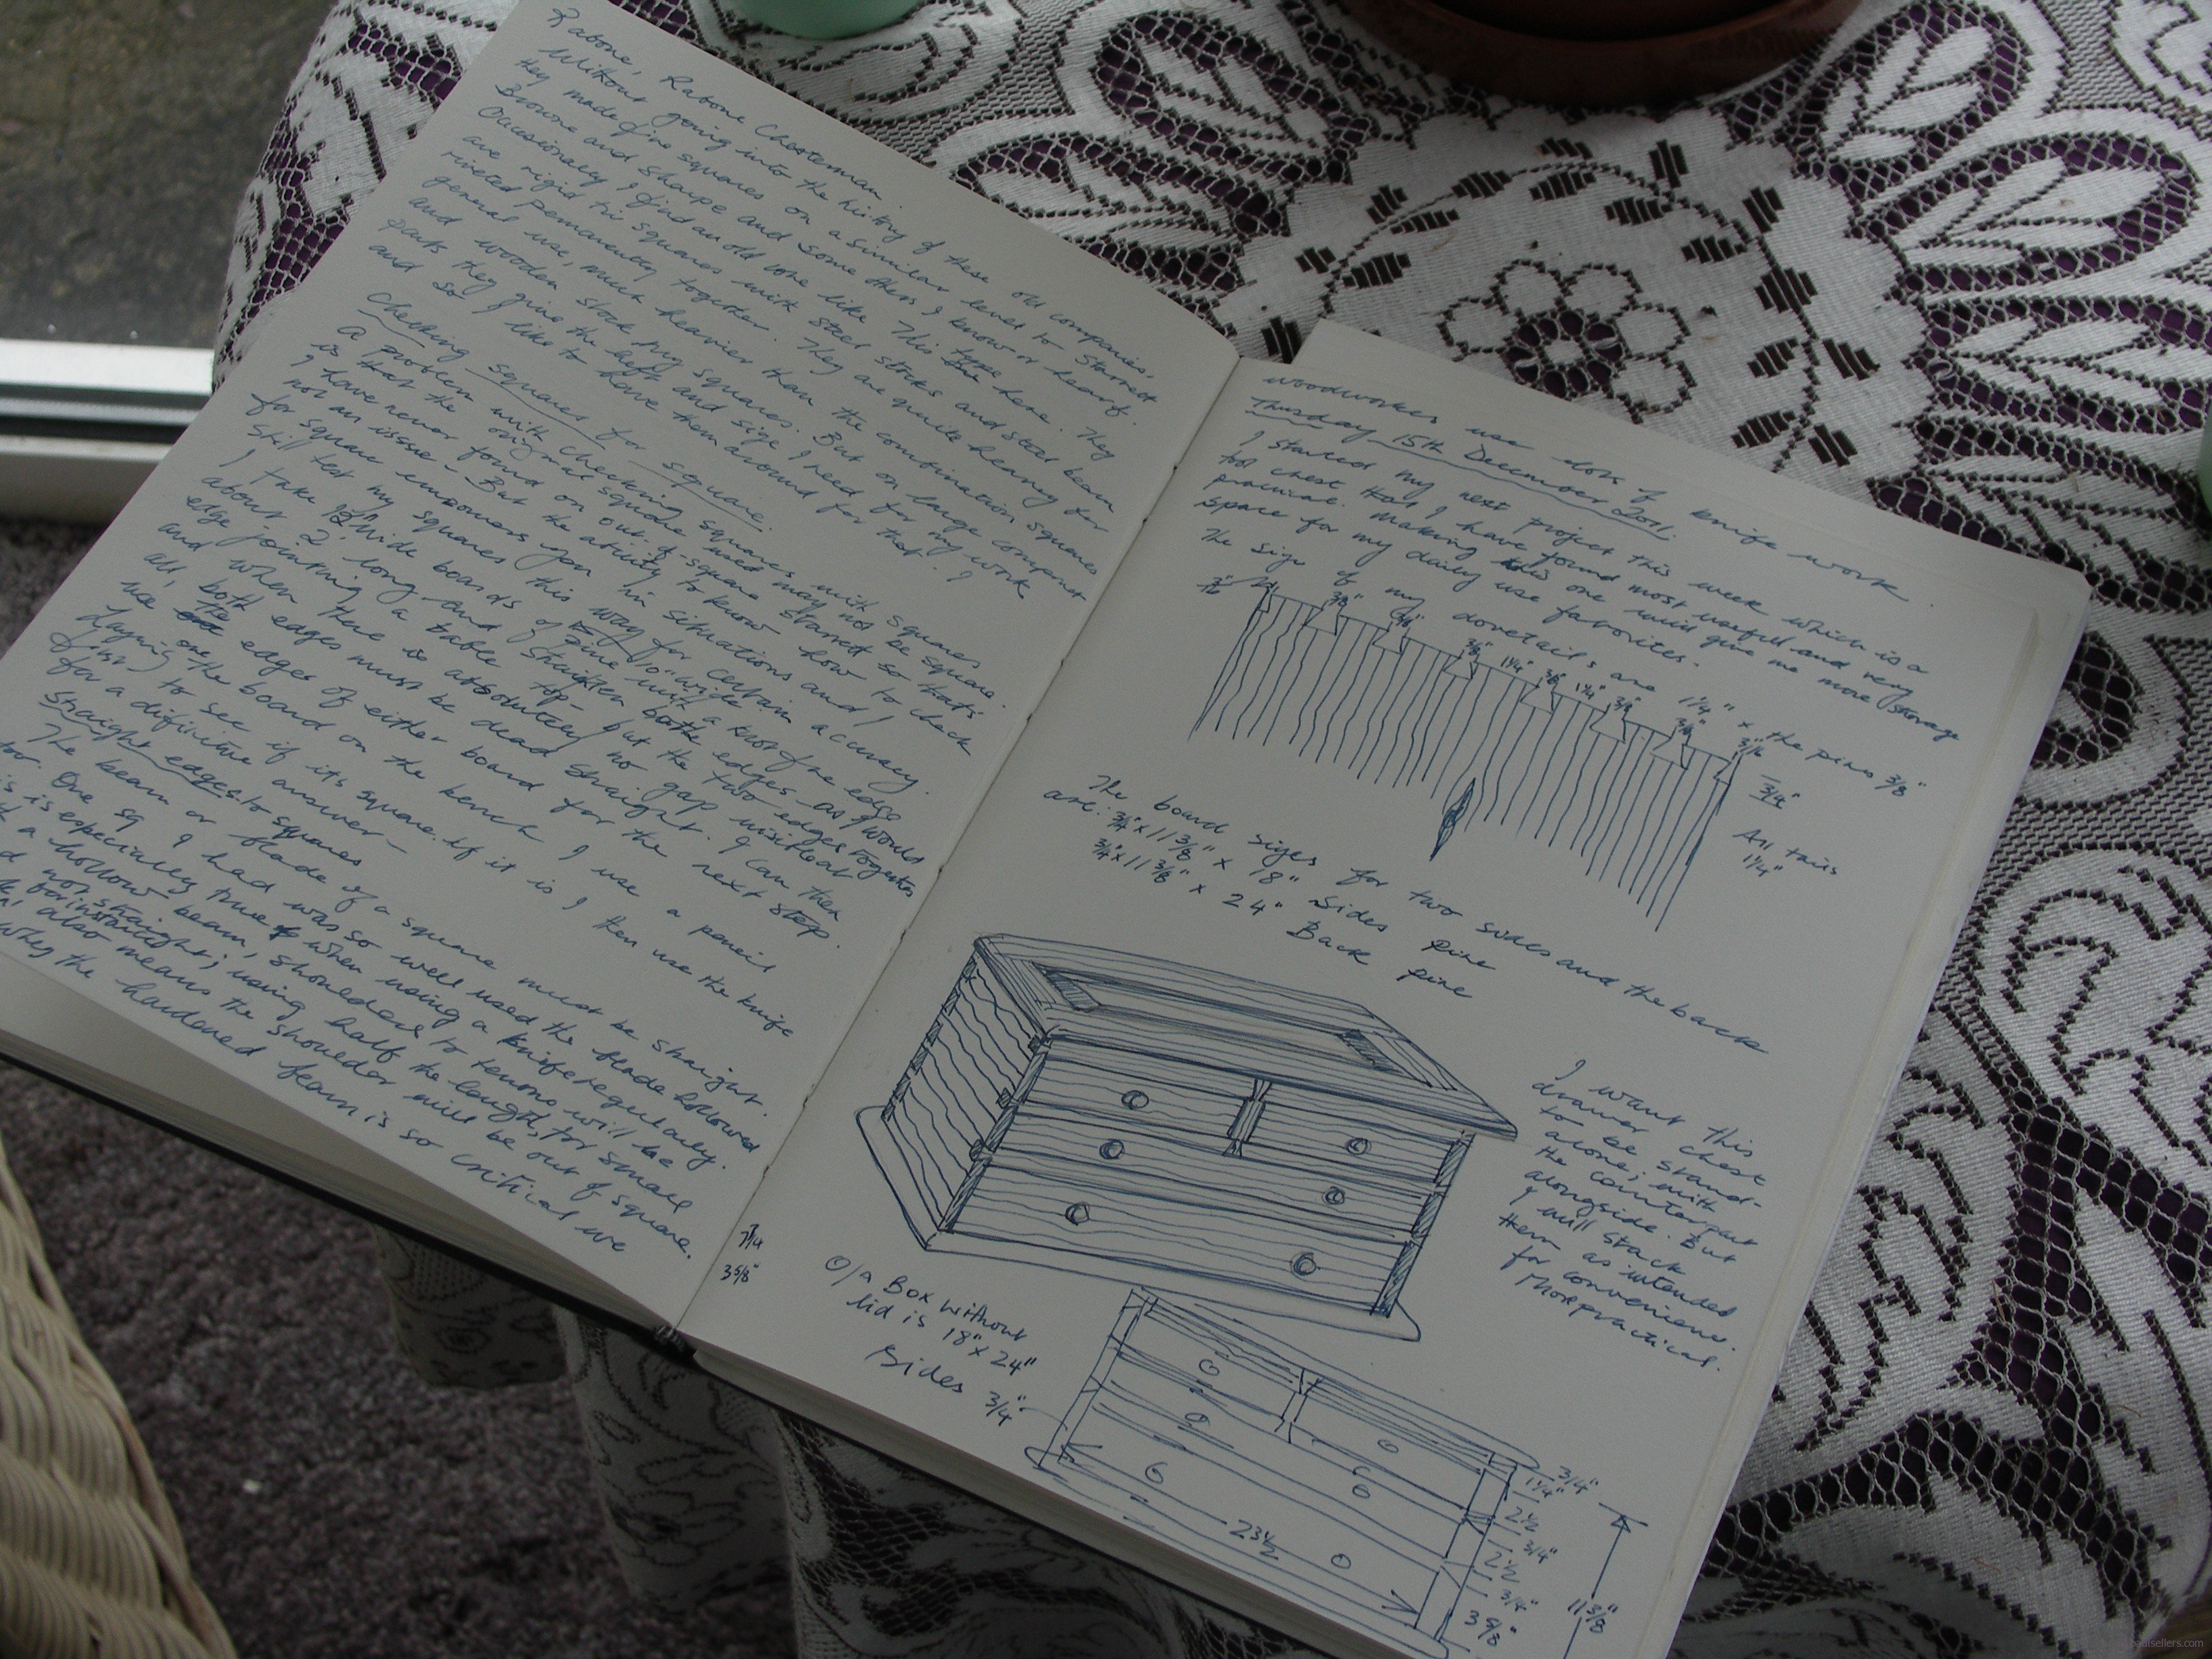 Rabone, Rabone Chesterman.
Without going into the history of these old companies.
They made fine squares on a similar level to Starrett
Browne and Sharpe and some others I know or hear of.
Occasionally I find an old one like this type here. They
are rigid try squares with steel stocks and steel beam
riveted permanently together. They are quite heavy for
general use, much heavier than the combination squares
and wooden stock try squares. But on large component
parts they give the heft and size I need for my work
and so I like to have them around for that. I
Checking squares for square.
A problem with checking squares with squares
is that the original square used may not be square.
I have never found on out of square Starrett so that's
not an issue - But the ability to know how to check
for square empowers you in situations and I
still test my squares this way for certain accuracy.
I take 12" wide boards of pine 10" wide
about 2' long and straighten both edges as I would
edge jointing a table top - put the two edges together
and when there is absolutely no gap visible at
all, both edges must be dead straight. I can then
use the edges of either board for the next step.
Laying one the board on the bench I use a pencil
first to see if its square. If it is I then use the knife
for a difinitive answer -
Straight edges to squares
The beam or blade of a square must be straight.
One sq I had was so well used the blade hollowed
is especially true when using a knife regularly.
a hollow beam, shoulders to tenons will be
not straight; using half the length, for small
for instance
also means the shoulder will be out of square.
why the hardened beam is so critical we
woodworkers use alots of knife work.
Thursday 15th December 2011.
I started my next project this week which is a
tool chest that I have found most useful and very
practical. Making this one will give me more storage
space for my daily use favorites.
The size of my dovetails are 1¼" x the pins 3/8"
3/16"
3/8"
3/8"
1¼"
3/8"
1¼"
3/8"
3/8"
3/16
3/4"
All tails
1¼"
The board sizes for two sides and the back
are: ¾" x 11 3/8" x 18" Sides Pine
¾" x 11 3/8" x 24" Back pine
I want this
drawer chest
to be stand-
alone; with
the counterpart
alongside. But
I will stack
them as intended
for convenience.
Mor practical.
7¼
3 5/8"
O/A Box without
lid is 18" x 24"
Sides 3/4"
23½
3/4"
1¼"
2½
3/4"
2½
3/4"
3 5/8"
11 3/8"